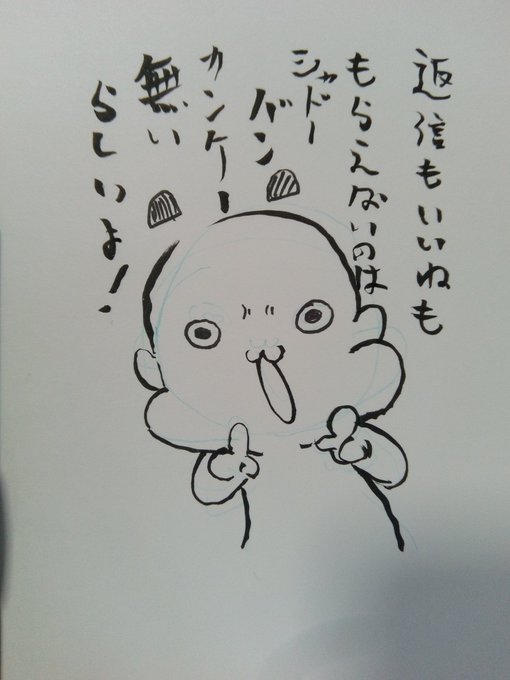 返信もいいねも
もらえないのは
シャドー
バン
カンケー
無い
らしいよ!